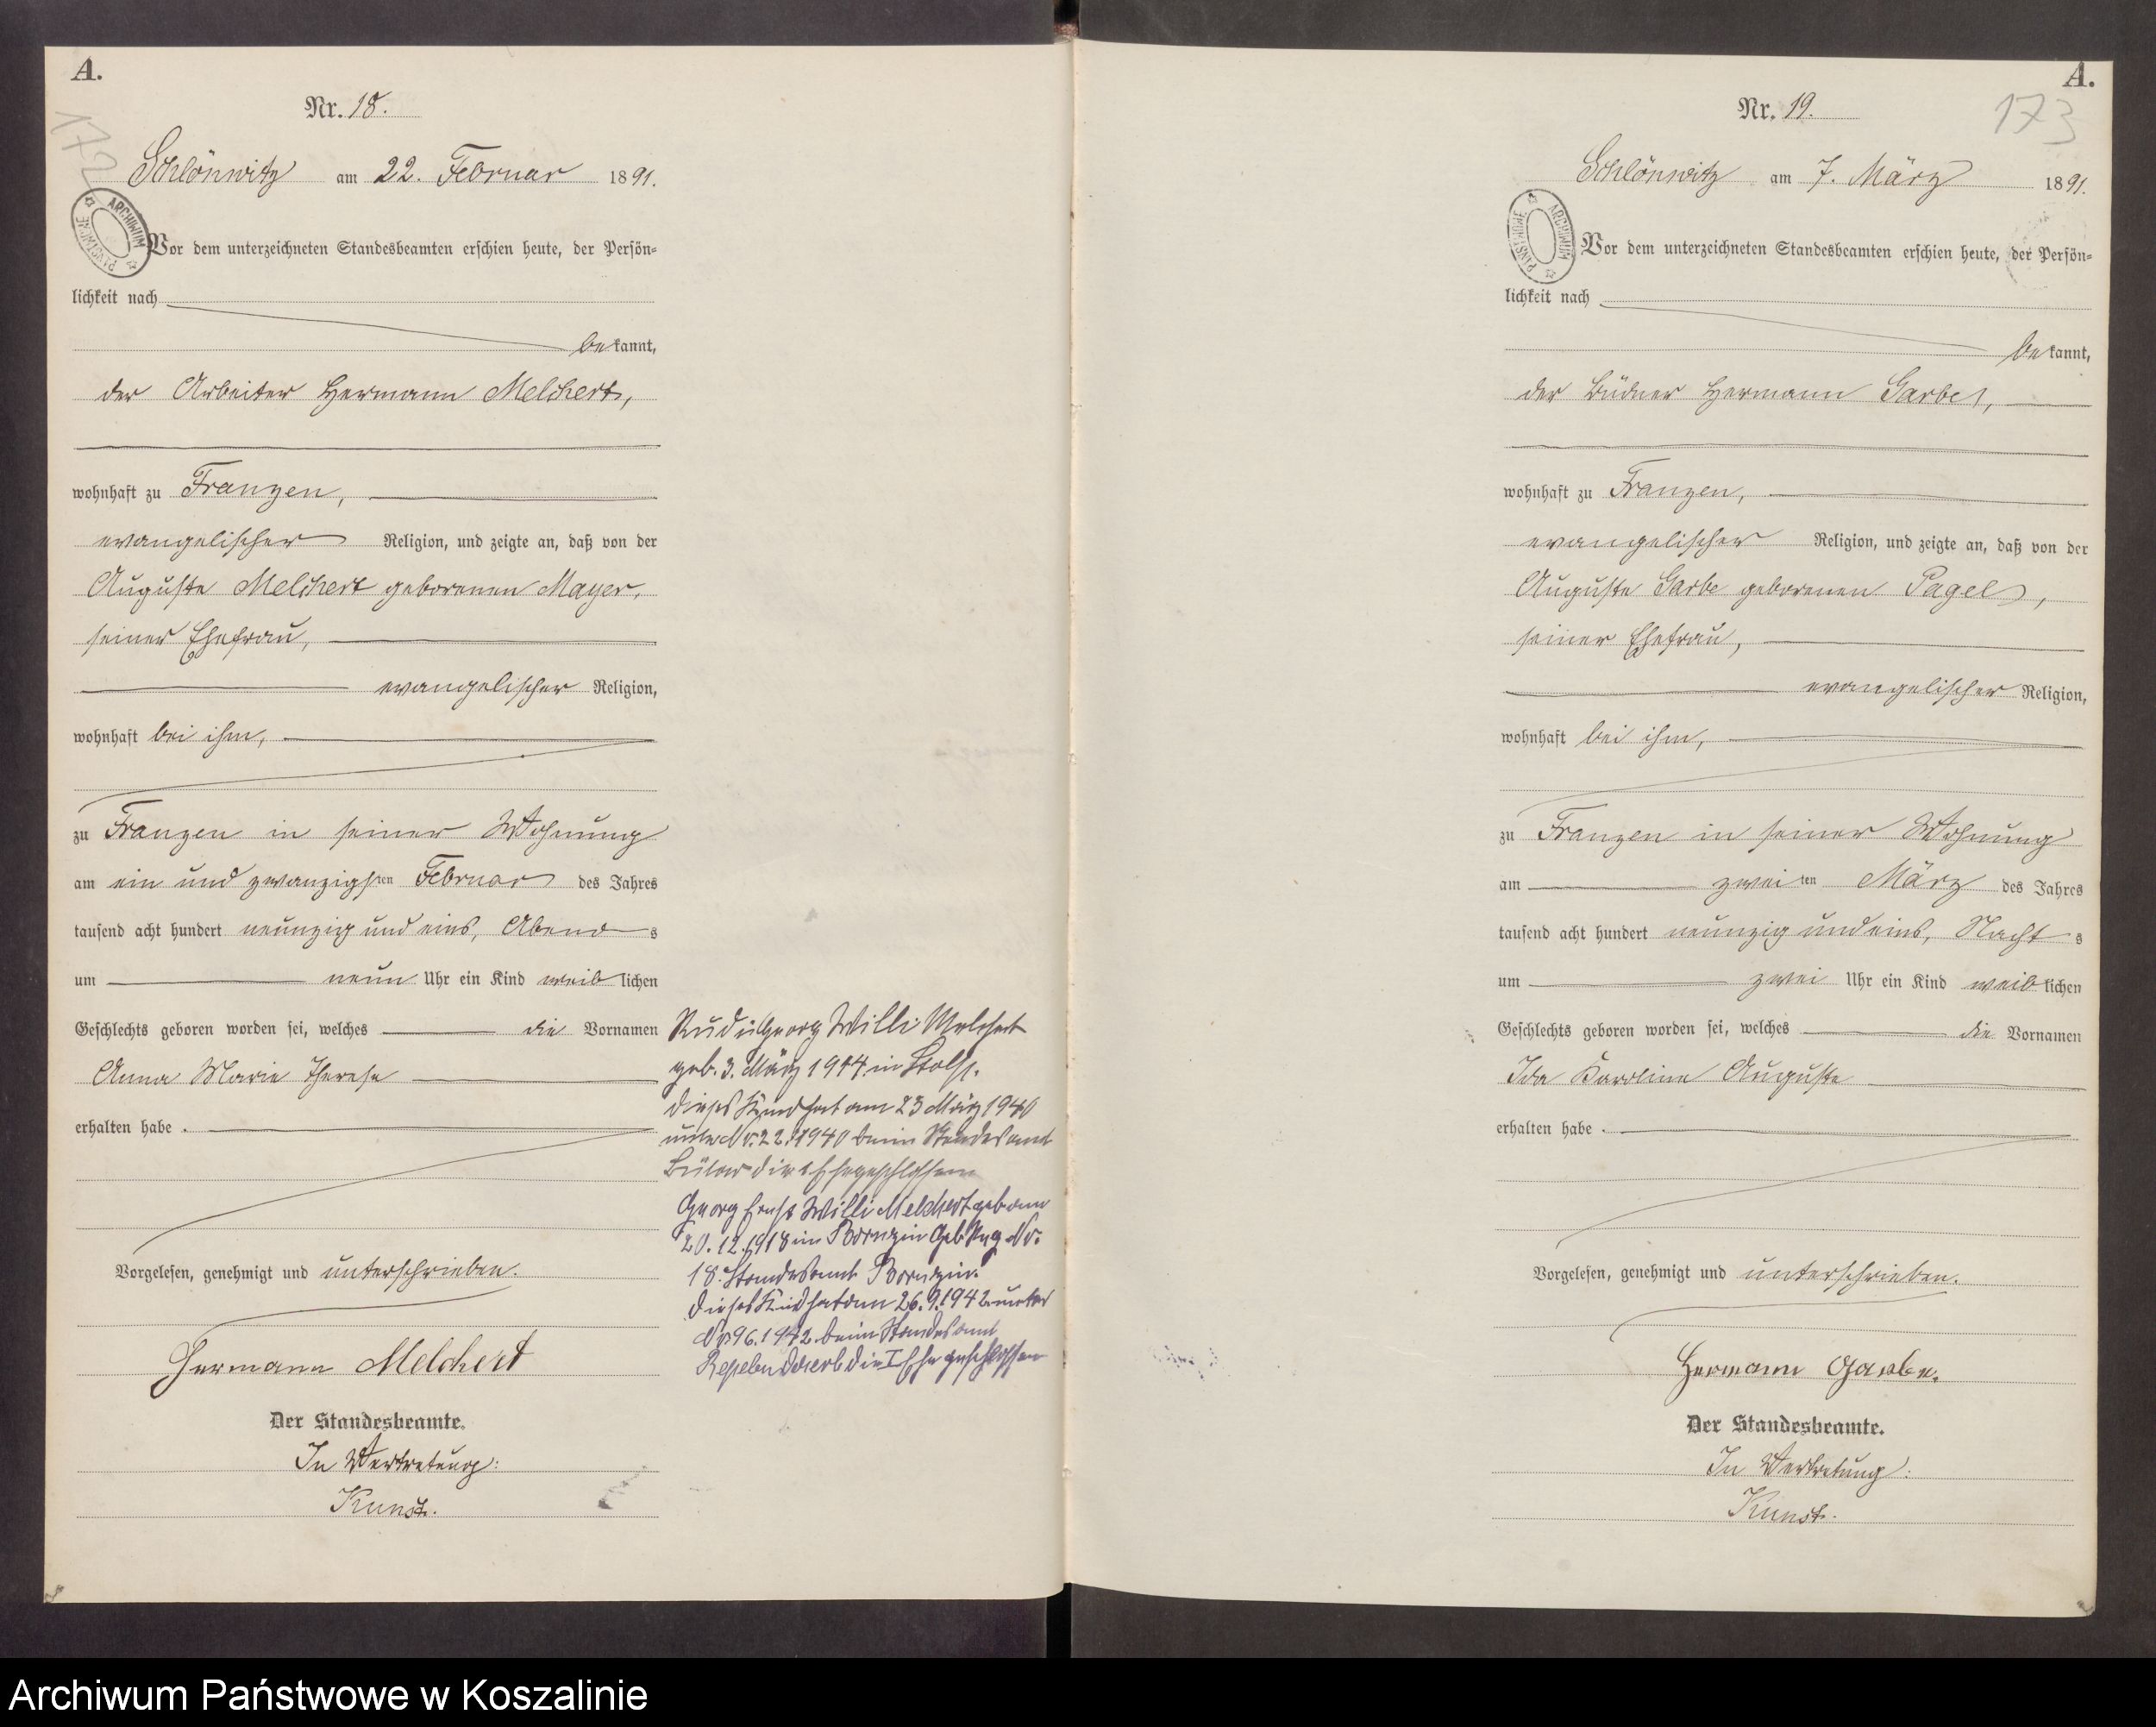 A.
Nr. 18.
172
Schlönwitz am 22. Februar 1891.
ARCHIWUM PAŃSTWOWE
Vor dem unterzeichneten Standesbeamten erschien heute, der Persön-
lichkeit nach
bekannt,
der Arbeiter Hermann Melchert,
wohnhaft zu Franzen,
evangelischer Religion, und zeigte an, daß von der
Auguste Melchert geborenen Mayer,
seiner Ehefrau,
evangelischer Religion,
wohnhaft bei ihm,
zu Franzen in seiner Wohnung
am ein und zwanzigsten Februar des Jahres
tausend acht hundert neunzig und eins, Abends
um neun Uhr ein Kind weiblichen
Geschlechts geboren worden sei, welches die Vornamen
Anna Marie Therese
erhalten habe.
Vorgelesen, genehmigt und unterschrieben.
Hermann Melchert
Der Standesbeamte.
In Vertretung:
Kunst.
Rudi Georg Willi Melchert
geb. 3. März 1914 in Stolp.
dieses Kind hat am 23 März 1940
unter Nr. 22.1940 beim Standesamt
Bütow die 1 Ehe geschlossen
Georg Ernst Willi Melchert geb am
20.12.1918 in Bornzin Geb Reg Nr.
18. Standesamt Bornzin.
dieses Kind hat am 26.9.1942 unter
Nr 96.1942 beim Standesamt
die I Ehe geschlossen
A.
Nr. 19.
173
Schlönwitz am 7. März 1891.
ARCHIWUM PAŃSTWOWE
Vor dem unterzeichneten Standesbeamten erschien heute, der Persön-
lichkeit nach
bekannt,
der Büdner Hermann Garbe,
wohnhaft zu Franzen,
evangelischer Religion, und zeigte an, daß von der
Auguste Garbe geborenen Pagel,
seiner Ehefrau,
evangelischer Religion,
wohnhaft bei ihm,
zu Franzen in seiner Wohnung
am zweiten März des Jahres
tausend acht hundert neunzig und eins, Nachts
um zwei Uhr ein Kind weiblichen
Geschlechts geboren worden sei, welches die Vornamen
Ida Karoline Auguste
erhalten habe.
Vorgelesen, genehmigt und unterschrieben.
Hermann Garbe.
Der Standesbeamte.
In Vertretung:
Kunst.
Archiwum Państwowe w Koszalinie